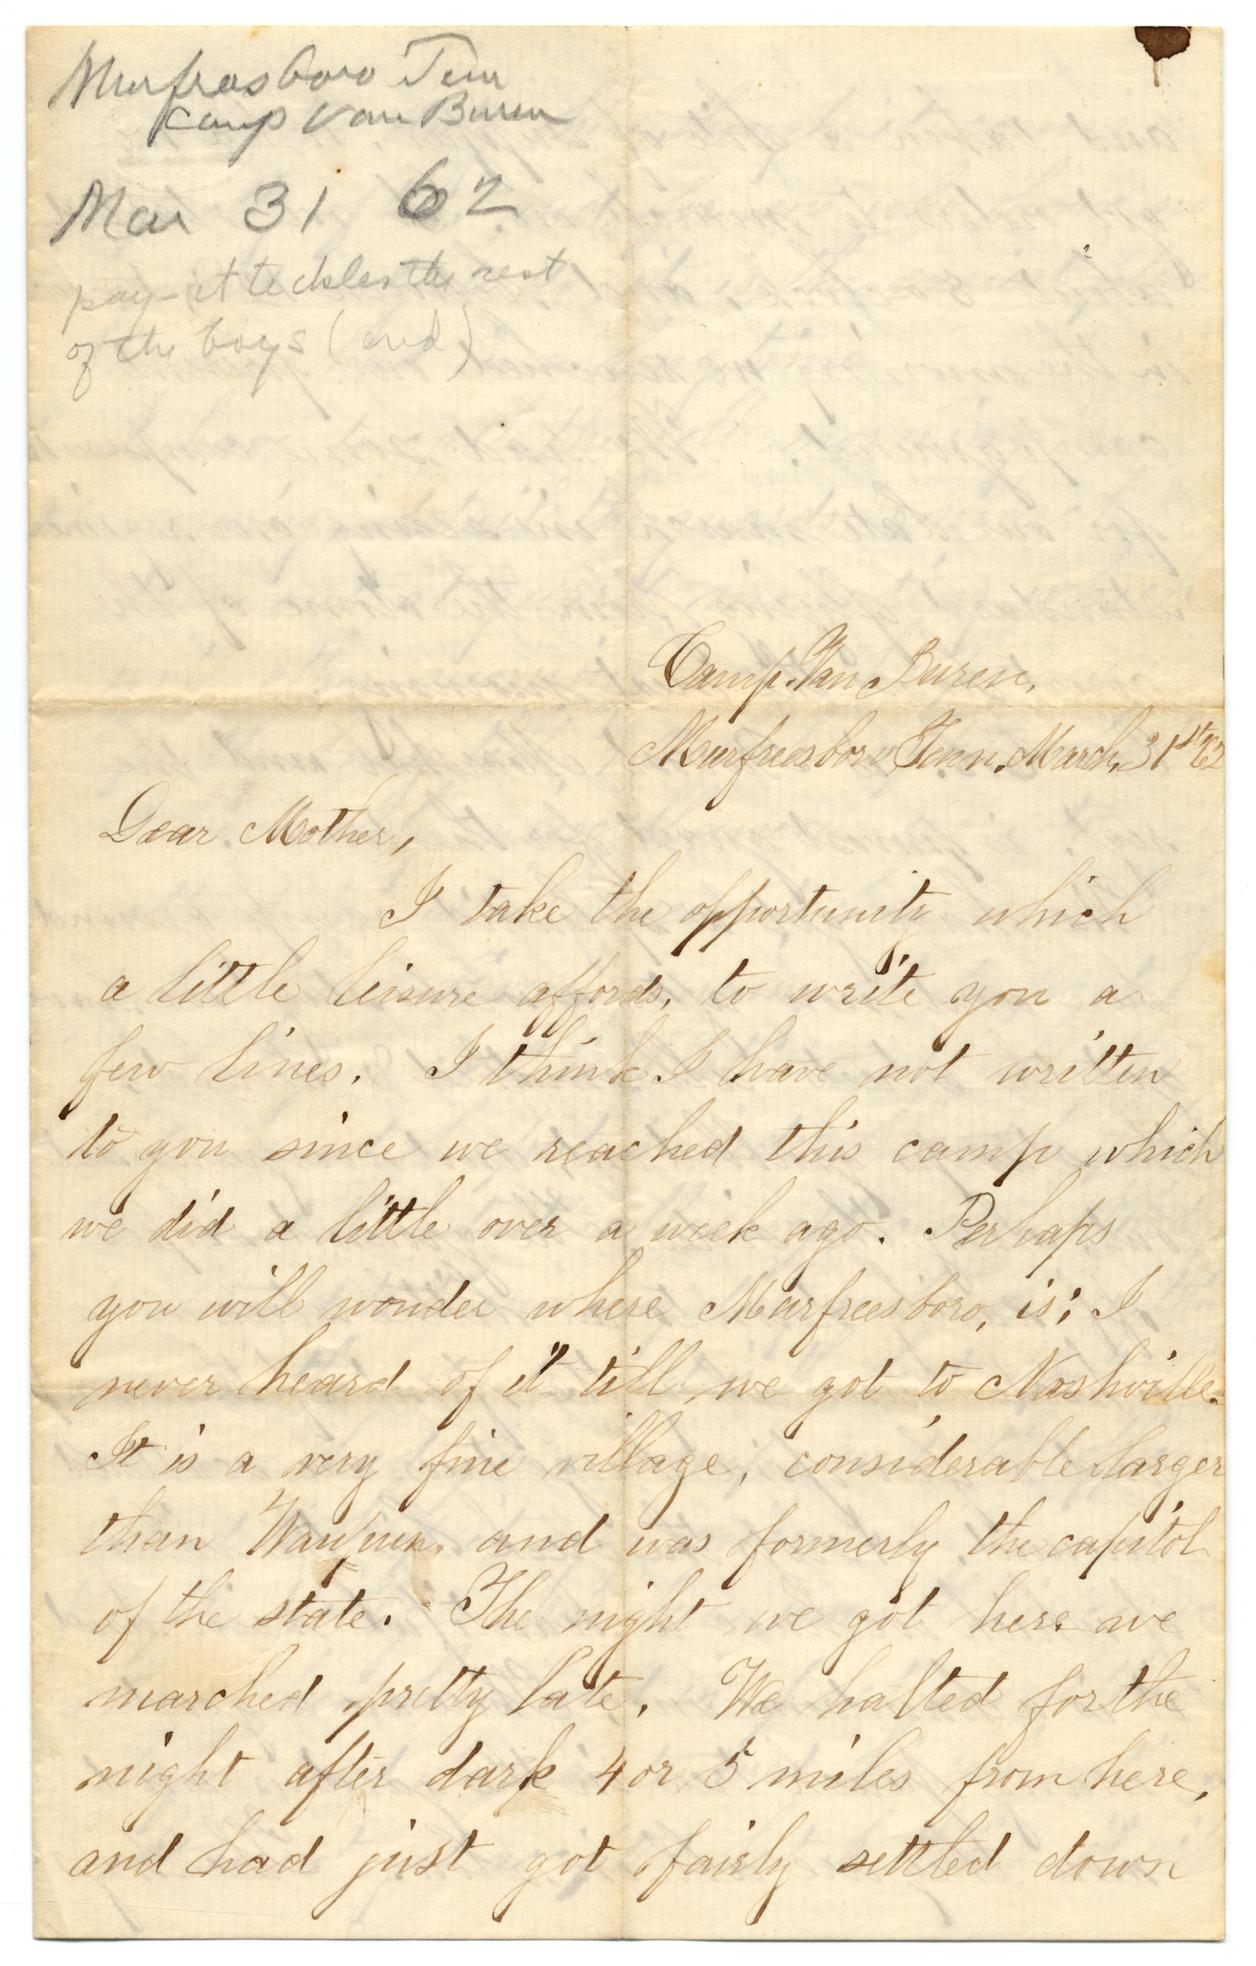 Murfreesboro Tenn
Camp Van Buren
Mar 31 62
pay - it teckles the rest
of the boys (end)
Camp. Van Buren,
Murfreesboro, Tenn. March, 31st 62
Dear Mother,
I take the opportunity which
a little leisure affords, to write you a
few lines. I think I have not written
to you since we reached this camp which
we did a little over a week ago. Perhaps
you will wonder where Murfreesboro, is; I
never heard of it till we got to Nashville.
It is a very fine village, considerable larger
than Waupun, and was formerly the capitol
of the state. The night we got here we
marched pretty late. We halted for the
night after dark 4 or 5 miles from here,
and had just got fairly settled down